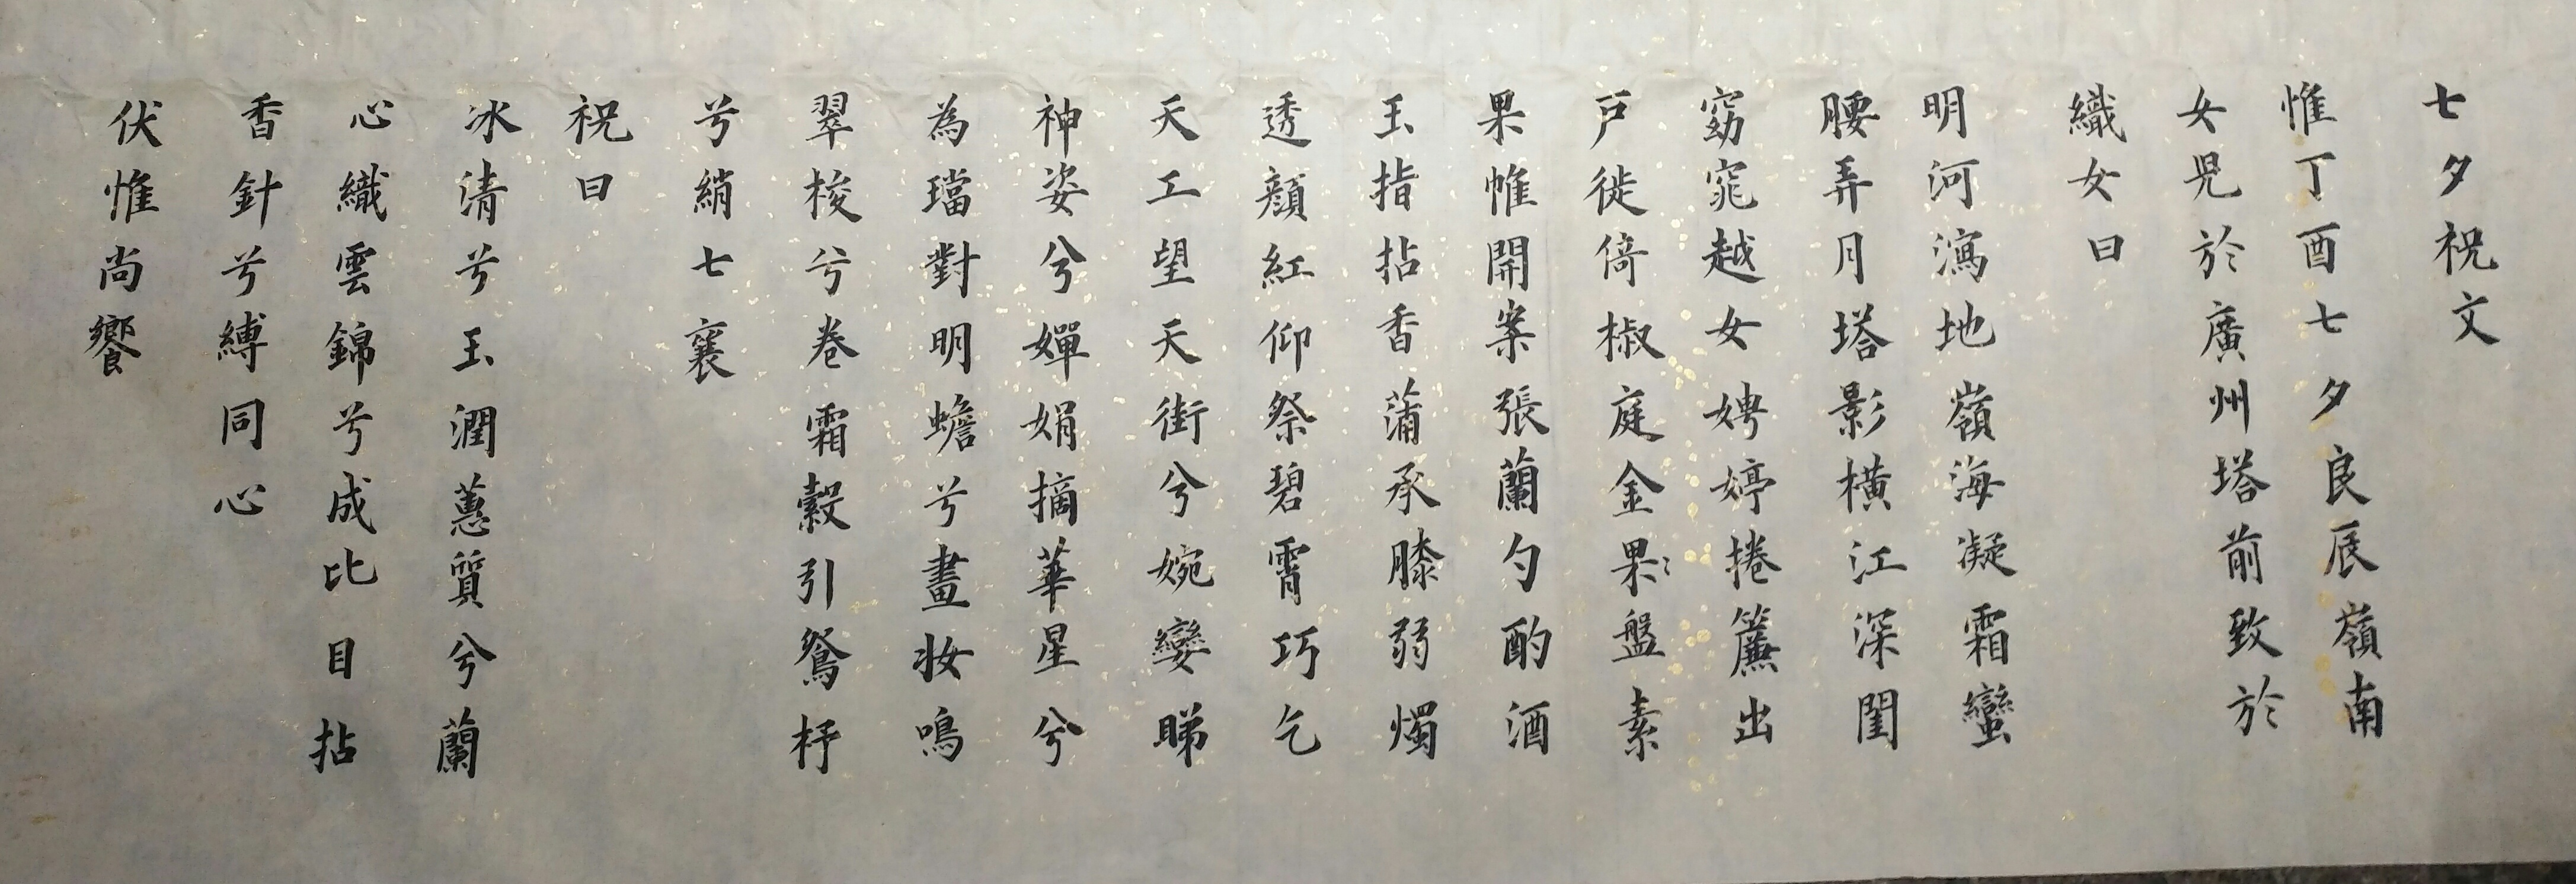 七夕祝文
惟丁酉七夕良辰嶺南
女兒於廣州塔前致於
織女曰
明河瀉地嶺海凝霜蠻
腰弄月塔影橫江深閨
窈窕越女娉婷捲簾出
戸徙倚椒庭金果盤素
果帷開案張蘭勺酌酒
玉指拈香蒲承膝弱燭
透顏紅仰祭碧霄巧乞
天工望天街兮婉孌睇
神姿兮嬋娟摘華星兮
為璫對明蟾兮畫妝鳴
翠梭兮卷霜縠引鴛杼
兮綃七襄
祝曰
冰清兮玉潤蕙質兮蘭
心織雲錦兮成比目拈
香針兮縛同心
伏惟尚饗